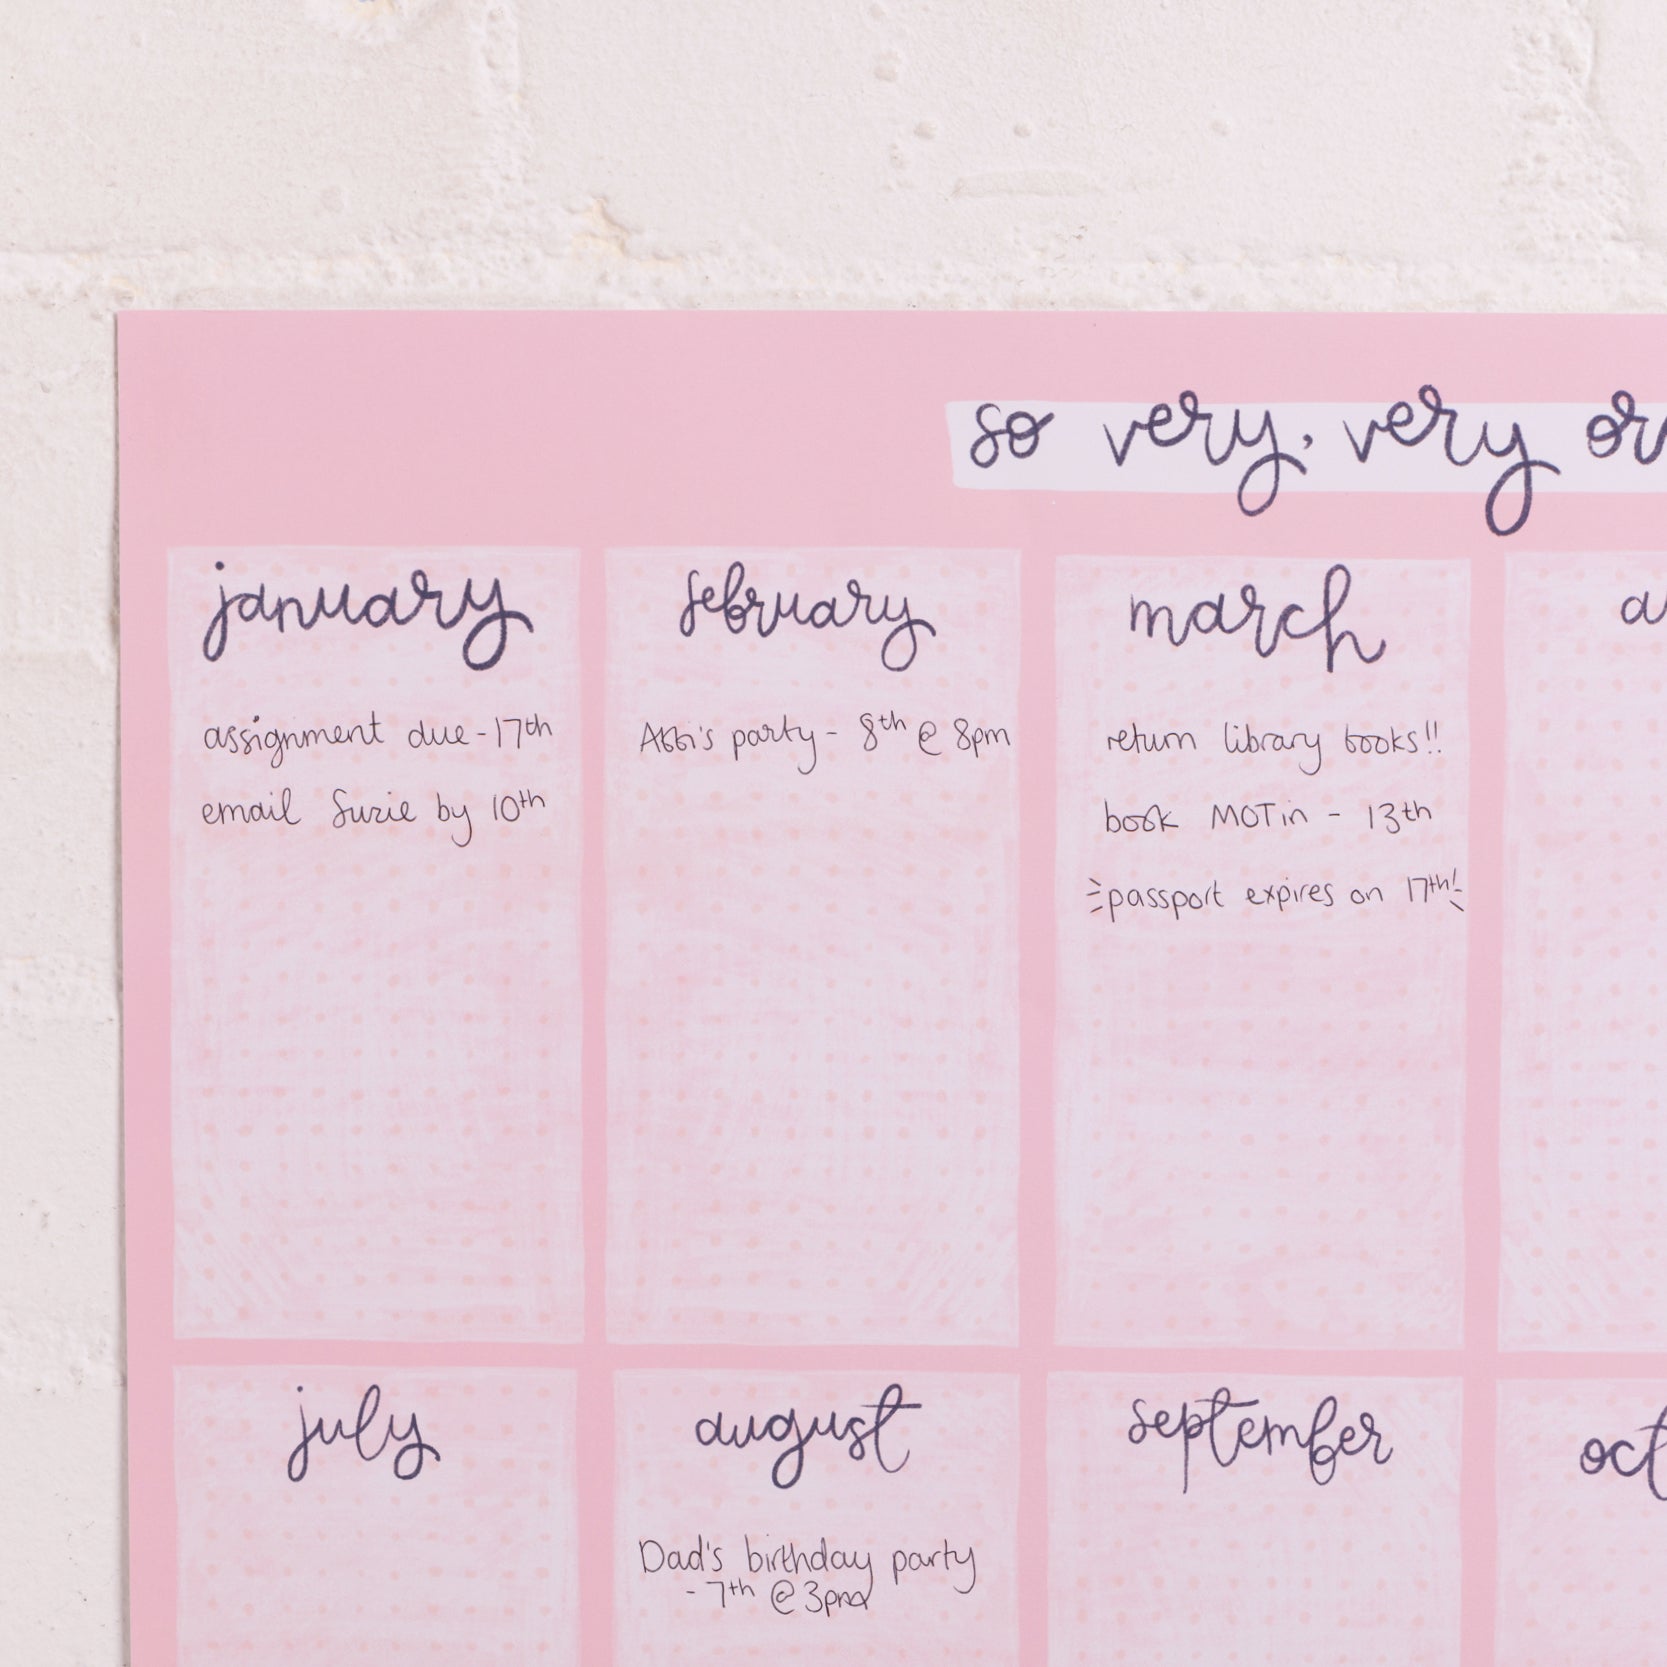 so very, very or
january
assignment due - 17th
email Suzie by 10th
february
Abbi's party - 8th @ 8pm
march
return library books!!
book MOT in - 13th
passport expires on 17th!
a
july
august
Dad's birthday party
- 7th @ 3pm
september
oct